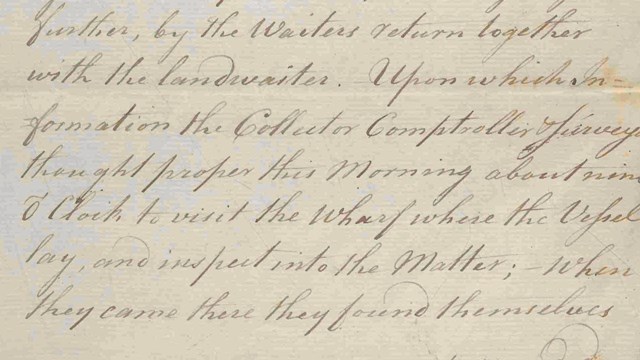 further, by the Waiters return together
with the landwaiter. Upon which In-
-formation the Collector Comptroller & Survey
thought proper this Morning about nine
O Clock to visit the Wharf where the Vessel
lay, and inspect into the Matter; - When
they came there they found themselves